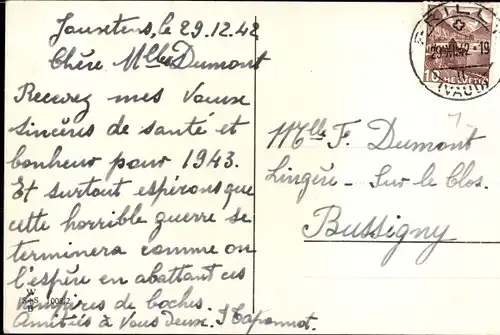 le 29.12.42
Chère Mlle Dumont
Recevez mes Vœux
sincères de santé et
bonheur pour 1943.
Et surtout espérons que
cette horrible guerre se
terminera comme on
l'espère en abattant ces
de boches.
Amitiés à Vous Deux.
W
S+S 1008/2
B
PRILLY
29.XII.42 - 19
(VAUD)
10 HELVETIA
Mlle F. Dumont
Lingère - Sur le Clos.
Bussigny